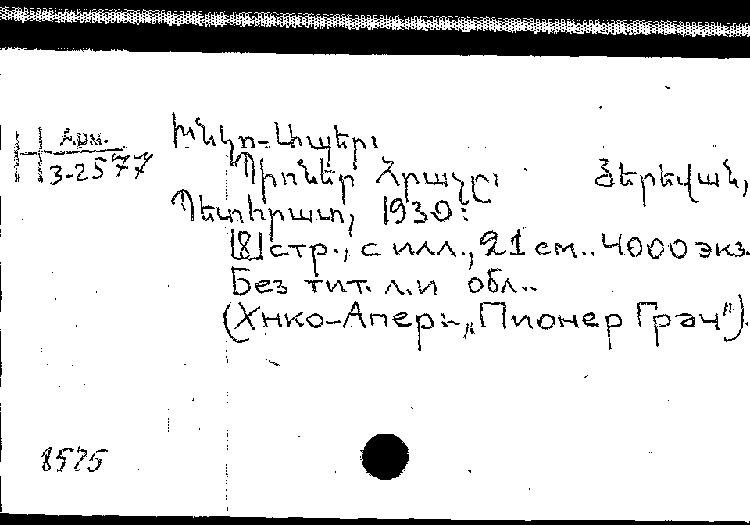 Арм.
3-2577
Խնկո-Ապեր։
Պիոներ Հրաչը։ Յերեվան,
Պետհրատ, 1930։
[8] стр., с илл., 21 см.. 4000 экз.
Без тит. л. и обл..
(Хнко-Апер.-„Пионер Грач").
8575